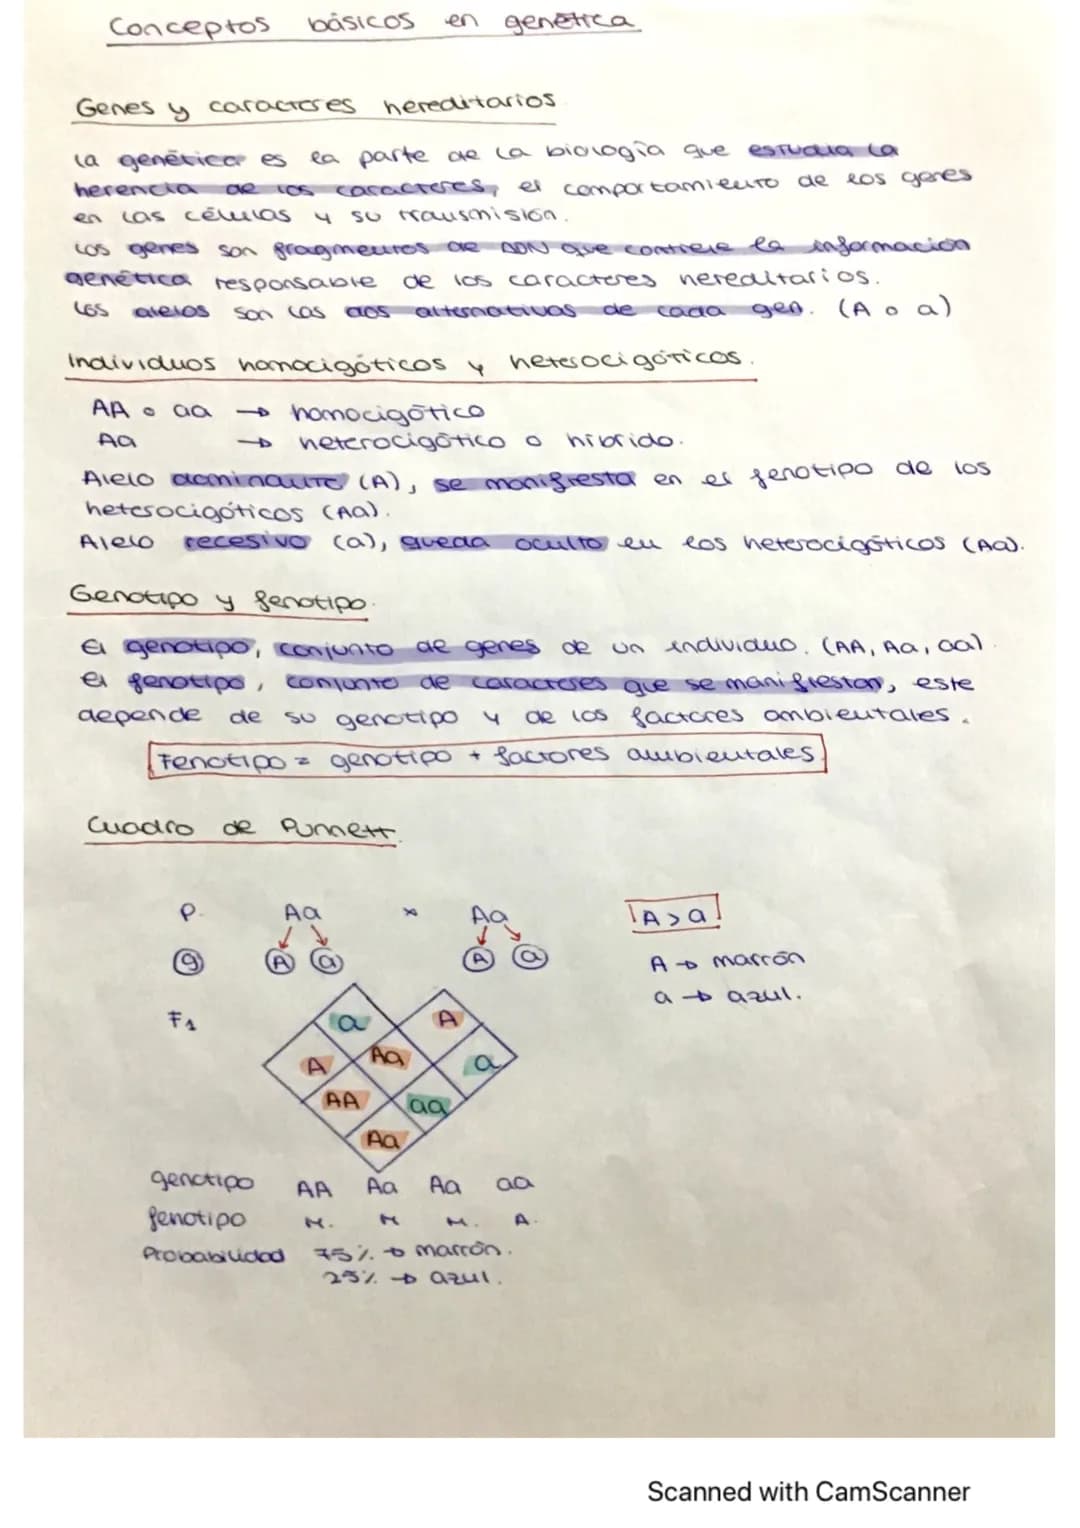 Conceptos básicos en genética
Genes y caracteres hereditarios
La genética es la parte de la biología que estudia la
herencia de los caracteres, el comportamiento de los genes
en las células y su transmisión.
Los genes son fragmentos de ADN que contiene la información
genética responsable de los caracteres hereditarios.
Los alelos son las dos alternativas de cada gen. (A o a)
Individuos homocigóticos y heterocigóticos.
AA o aa → homocigótico
Aa → heterocigótico o híbrido.
Alelo dominante (A), se manifiesta en el fenotipo de los
heterocigóticos (Aa).
Alelo recesivo (a), queda oculto en los heterocigóticos (Aa).
Genotipo y fenotipo.
El genotipo, conjunto de genes de un individuo. (AA, Aa, aa).
El fenotipo, conjunto de caracteres que se manifiestan, este
depende de su genotipo y de los factores ambientales.
Fenotipo = genotipo + factores ambientales.
Cuadro de Punnett.
P. Aa x Aa
A > a
g A a A a
A → marrón
a → azul.
F1
a A
A Aa a
AA aa
Aa
genotipo AA Aa Aa aa
fenotipo M. M M. A.
Probabilidad 75% → marrón.
25% → azul.
Scanned with CamScanner